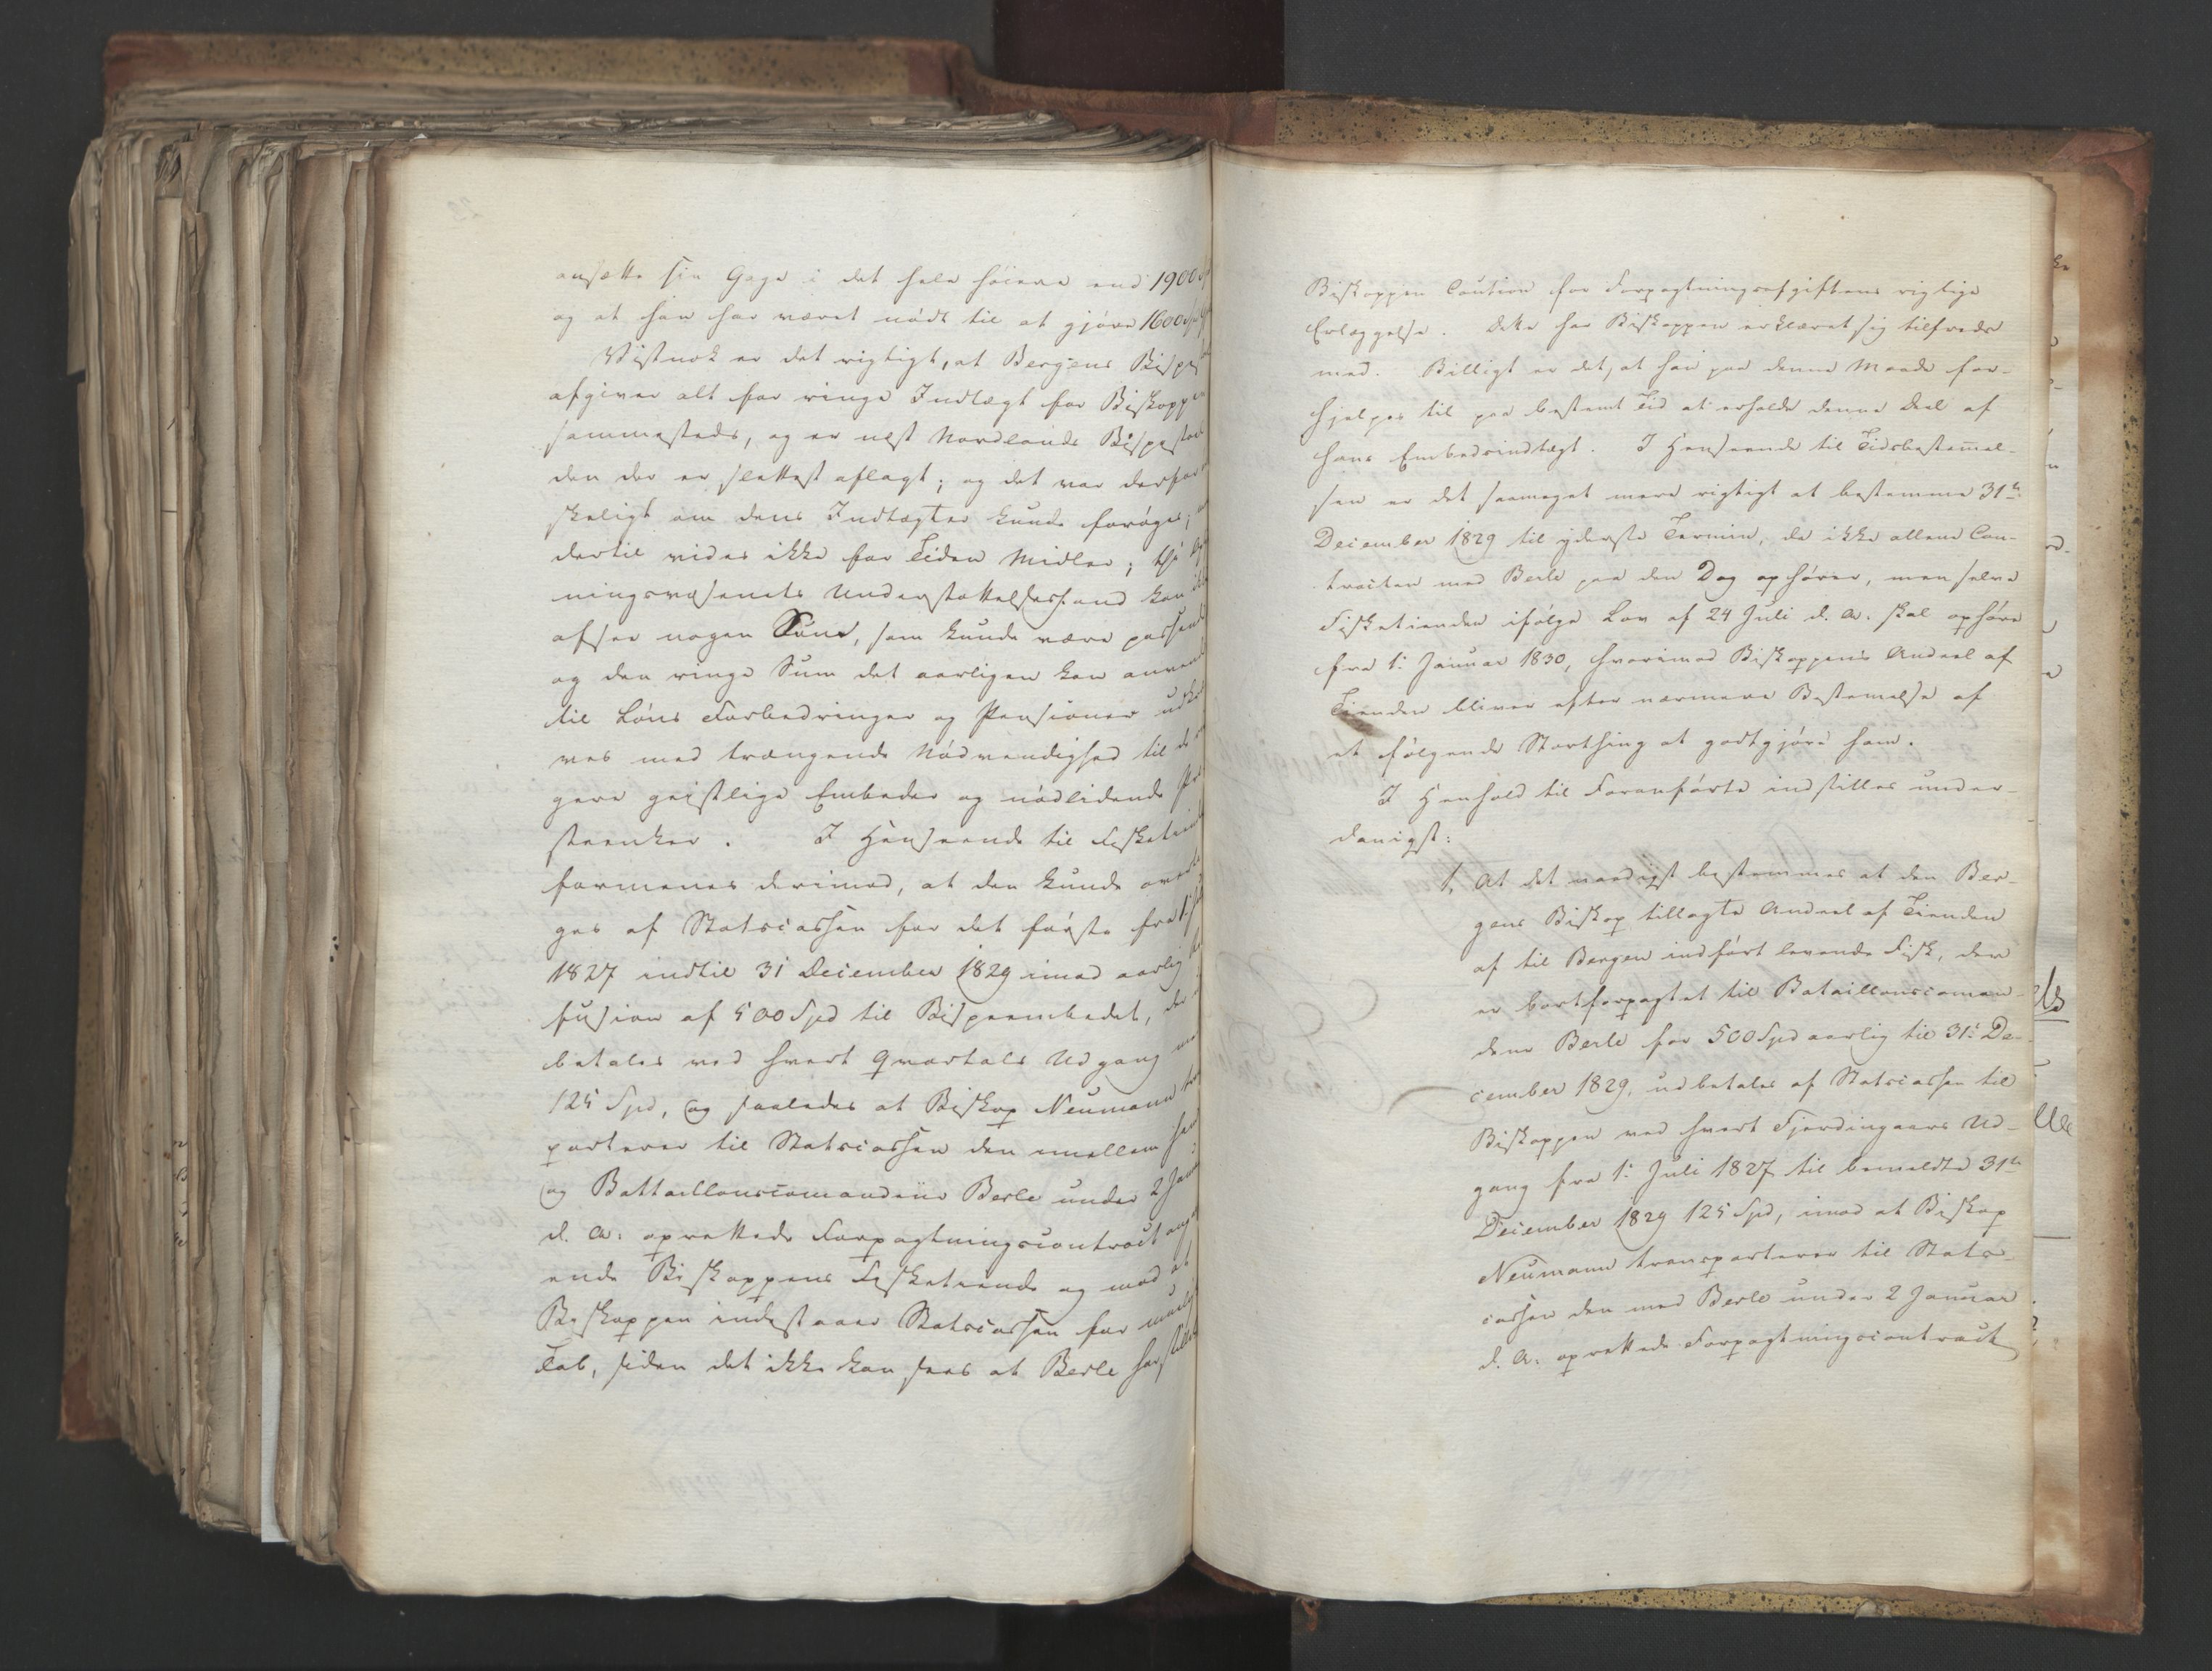 ansætte sin Gage i det hele høiere end 1900
og at han har været nødt til at gjøre 1600 Spd
Vistnok er det rigtigt, at Bergens Bispe
afgiver alt for ringe Indtægt for Biskoppen
sammesteds, og er næst Nordlands Bispestoel
den der er slettest aflagt; og det var derfor
ønskeligt om dens Indtægter kunde forøges;
dertil vides ikke for Tiden Midler; thi
ningsvæsenets Understøttelsesfond kan ikke
afsee nogen Sum, som kunde være passende
og den ringe Sum det aarligen kan anvend
til Løns Forbedringer og Pensioner udkræ
ves med trængende Nødvendighed til de
gere geistlige Embeder og nødlidende Præ
steenker. I Henseende til Fisketiende
formenes derimod, at den kunde overta
ges af Statscassen for det første fra 1
1827 indtil 31 December 1829 imod aarlig
fusion af 500 Spd til Bispeembedet, der
betales ved hvert Qvartals Udgang med
125 Spd, og saaledes at Biskop Neumann trans
porterer til Statscassen den imellem ham
og Battaillonscomandeur Berle under 2 Januar
d. A. oprettede Forpagtningscontract angaa
ende Biskoppens Fisketiende og mod at
Biskoppen indestaaer Statscassen for muligt
Tab, siden det ikke kan sees at Berle har stillet
Biskoppen Caution for Forpagtningsafgiftens rigtige
Erlæggelse. Dette har Biskoppen erklæret sig tilfreds
med. Billigt er det, at han paa denne Maade for-
hjelpes til paa bestemt Tid at erholde denne Deel af
hans Embedsindtægt. I Henseende til Tidsbestemel-
sen er det saameget mere rigtigt at bestemme 31te
December 1829 til yderste Termin, da ikke allene Con-
tracten med Berle paa den Dag ophører, men selve
Fisketienden ifølge Lov af 24 Juli d. A. skal ophøre
fra 1. Januar 1830, hvorimod Biskoppens Andeel af
Tienden bliver efter nærmere Bestemelse af
et følgende Storthing at godtgjøre ham.
I Henhold til Foranførte indstilles under-
danigst:
1. At det naadigst bestemmes at den Ber-
gens Biskop tillagte Andeel af Tienden
af til Bergen indført levende Fisk, der
er bortforpagtet til Bataillonscoman-
deur Berle for 500 Spd aarlig til 31. De-
cember 1829, udbetales af Statscassen til
Biskoppen ved hvert Fjerdingaars Ud-
gang fra 1. Juli 1827 til bemeldte 31te
December 1829 125 Spd, imod at Biskop
Neumann transporterer til Stats-
cassen den med Berle under 2 Januar
d. A. oprettede Forpagtningscontract